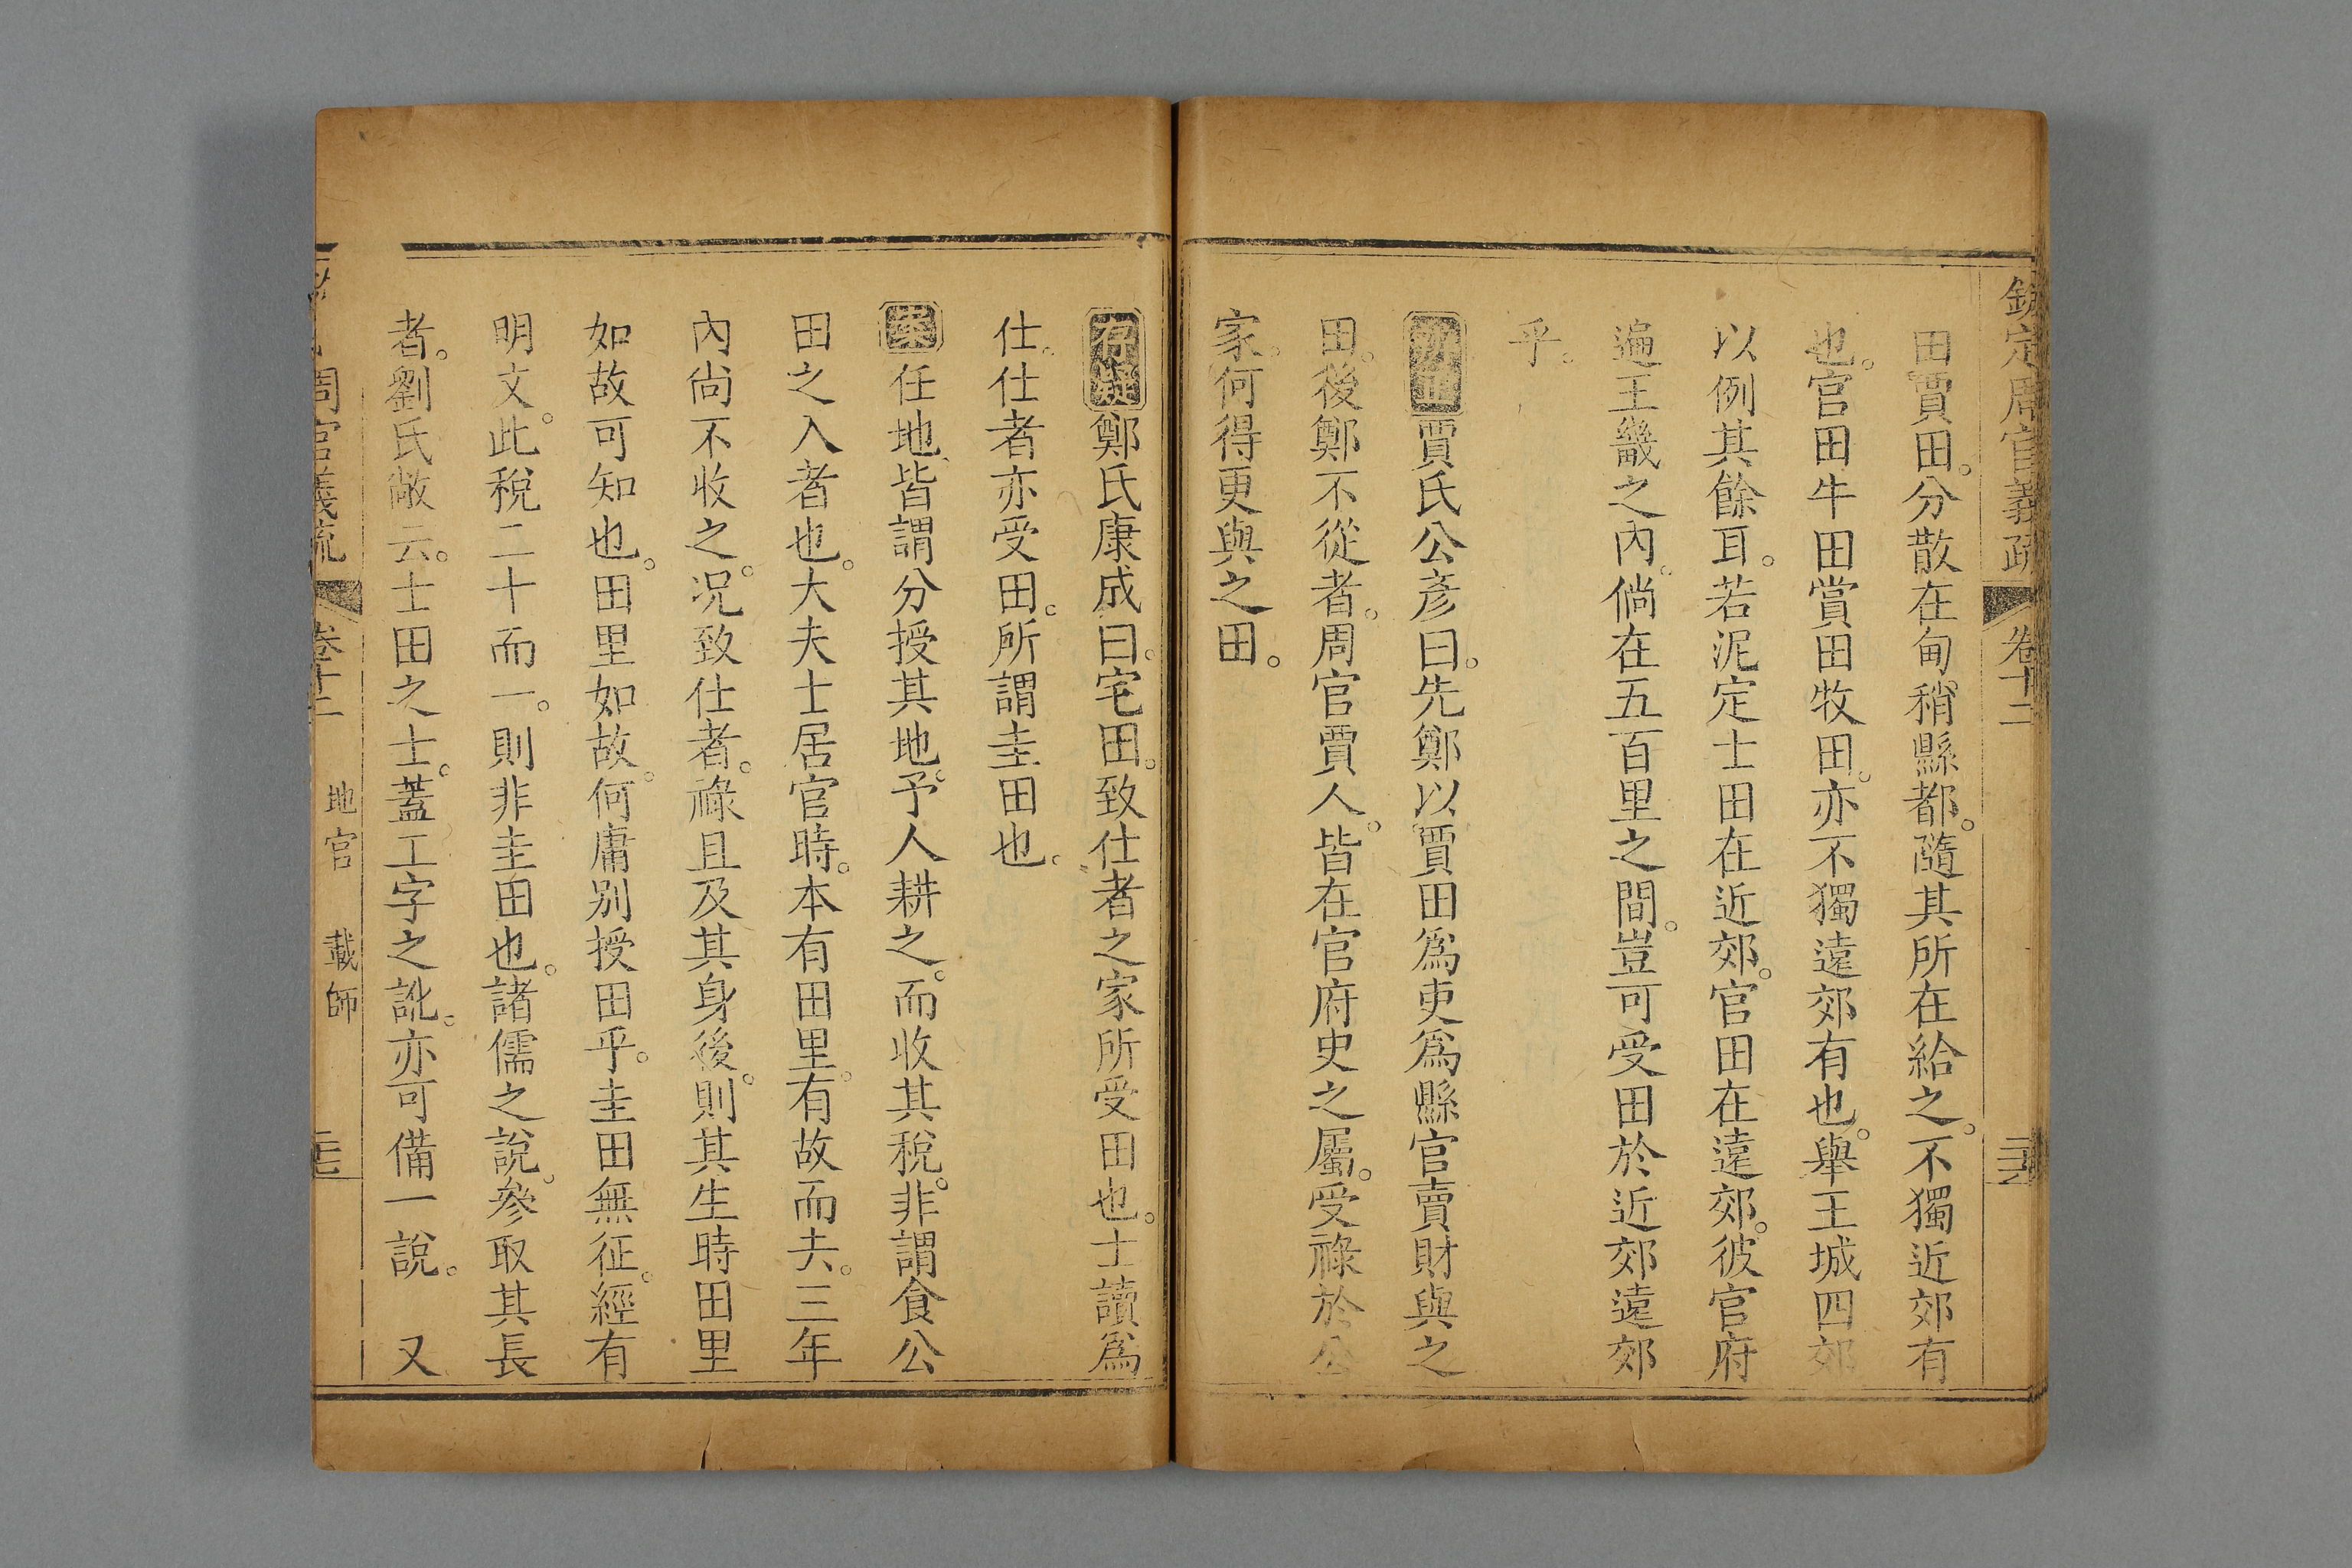 欽定周官義疏 卷十二
田賈田。分散在甸稍縣都。隨其所在給之。不獨近郊有
也。官田牛田賞田牧田。亦不獨遠郊有也。舉王城四郊
以例其餘耳。若泥定士田在近郊。官田在遠郊。彼官府
遍王畿之內。倘在五百里之間。豈可受田於近郊遠郊
乎。
賈氏公彥曰。先鄭以賈田爲吏爲縣官賣財與之
田。後鄭不從者。周官賈人。皆在官府史之屬。受祿於公
家。何得更與之田。
存疑鄭氏康成曰。宅田。致仕者之家所受田也。士讀爲
仕。仕者亦受田。所謂圭田也。
案任地、皆謂分授其地。予人耕之。而收其稅。非謂食公
田之入者也。大夫士居官時。本有田里。有故而去。三年
內尙不收之。況致仕者。祿且及其身後。則其生時田里
如故可知也。田里如故。何庸別授田乎。圭田無征。經有
明文。此稅二十而一。則非圭田也。諸儒之說。參取其長
者。劉氏敞云。士田之士。蓋工字之訛。亦可備一說。 又
周官義疏 卷十二 地官 載師